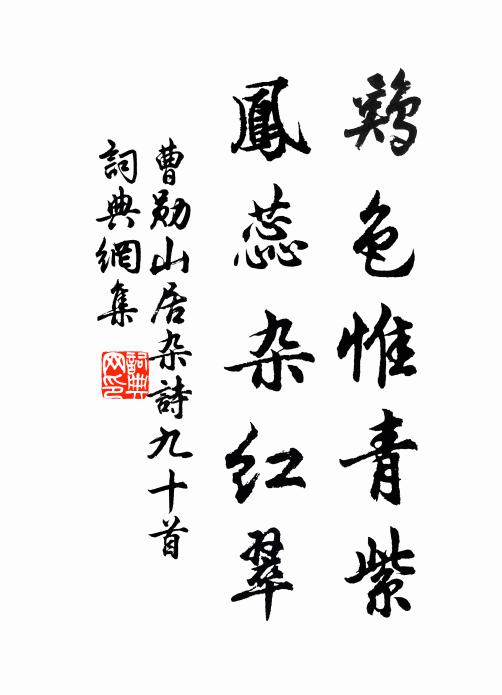 鷄色惟青紫
鳳蕊杂红翠
曹勋山居杂詩九十首
詞典網集
詞典网印